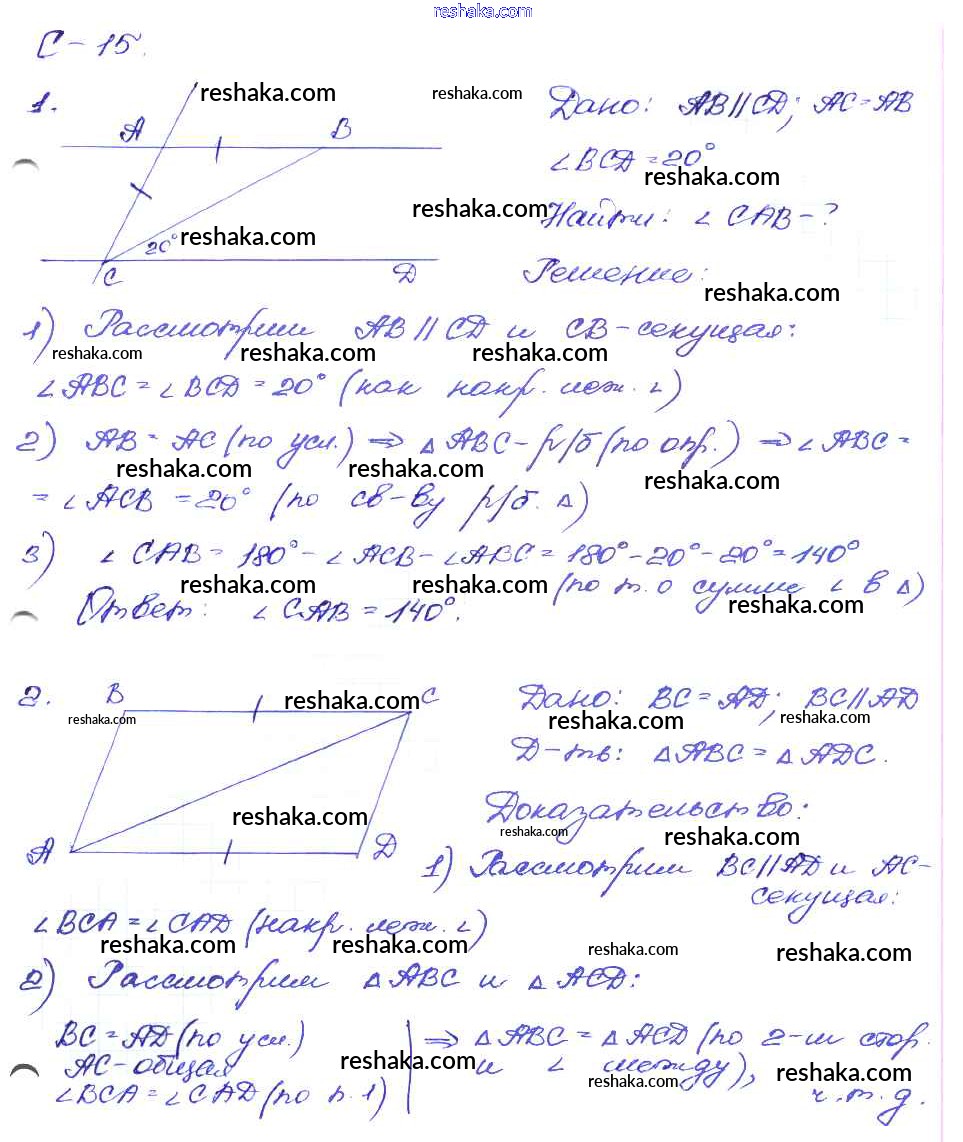 reshaka.com
С-15.
1.
reshaka.com
reshaka.com
Дано: AB||CD; AC=AB
A
B
∠BCD=20°
reshaka.com
reshaka.com
Найти: ∠CAB-?
20°
reshaka.com
C
D
Решение:
reshaka.com
1) Рассмотрим AB||CD и CB-секущая:
reshaka.com
reshaka.com
reshaka.com
∠ABC=∠BCD=20° (как накр. леж. ∠)
2) AB=AC (по усл.) ⇒ △ABC-р/б (по опр.) ⇒ ∠ABC=
reshaka.com
reshaka.com
reshaka.com
=∠ACB=20° (по св-ву р/б. △)
3) ∠CAB=180°-∠ACB-∠ABC=180°-20°-20°=140°
reshaka.com
reshaka.com
(по т. о сумме ∠ в △)
reshaka.com
Ответ: ∠CAB=140°.
2.
B
reshaka.com
C
Дано: BC=AD; BC||AD
reshaka.com
reshaka.com
reshaka.com
Д-ть: △ABC=△ADC.
reshaka.com
Доказательство:
reshaka.com
reshaka.com
A
D
1) Рассмотрим BC||AD и AC-
секущая:
∠BCA=∠CAD (накр. леж. ∠)
reshaka.com
reshaka.com
reshaka.com
reshaka.com
2) Рассмотрим △ABC и △ACD:
BC=AD (по усл.)
⇒ △ABC=△ACD (по 2-м стор.
AC-общая
reshaka.com
и ∠ между),
reshaka.com
reshaka.com
∠BCA=∠CAD (по п.1)
ч.т.д.